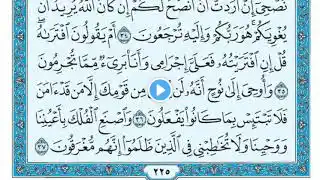 نُصْحِىٓ إِنْ أَرَدتُّ أَنْ أَنصَحَ لَكُمْ إِن كَانَ ٱللَّهُ يُرِيدُ أَن
يُغْوِيَكُمْ هُوَ رَبُّكُمْ وَإِلَيْهِ تُرْجَعُونَ ٣٤ أَمْ يَقُولُونَ ٱفْتَرَىٰهُ
قُلْ إِنِ ٱفْتَرَيْتُهُۥ فَعَلَىَّ إِجْرَامِى وَأَنَا۠ بَرِىٓءٌ مِّمَّا تُجْرِمُونَ
٣٥ وَأُوحِىَ إِلَىٰ نُوحٍ أَنَّهُۥ لَن مِن قَوْمِكَ إِلَّا مَن قَدْ ءَامَنَ
فَلَا تَبْتَئِسْ بِمَا كَانُوا۟ يَفْعَلُونَ ٣٦ وَٱصْنَعِ ٱلْفُلْكَ بِأَعْيُنِنَا
وَوَحْيِنَا وَلَا تُخَٰطِبْنِى فِى ٱلَّذِينَ ظَلَمُوٓا۟ إِنَّهُم مُّغْرَقُونَ ٣٧
٢٢٥